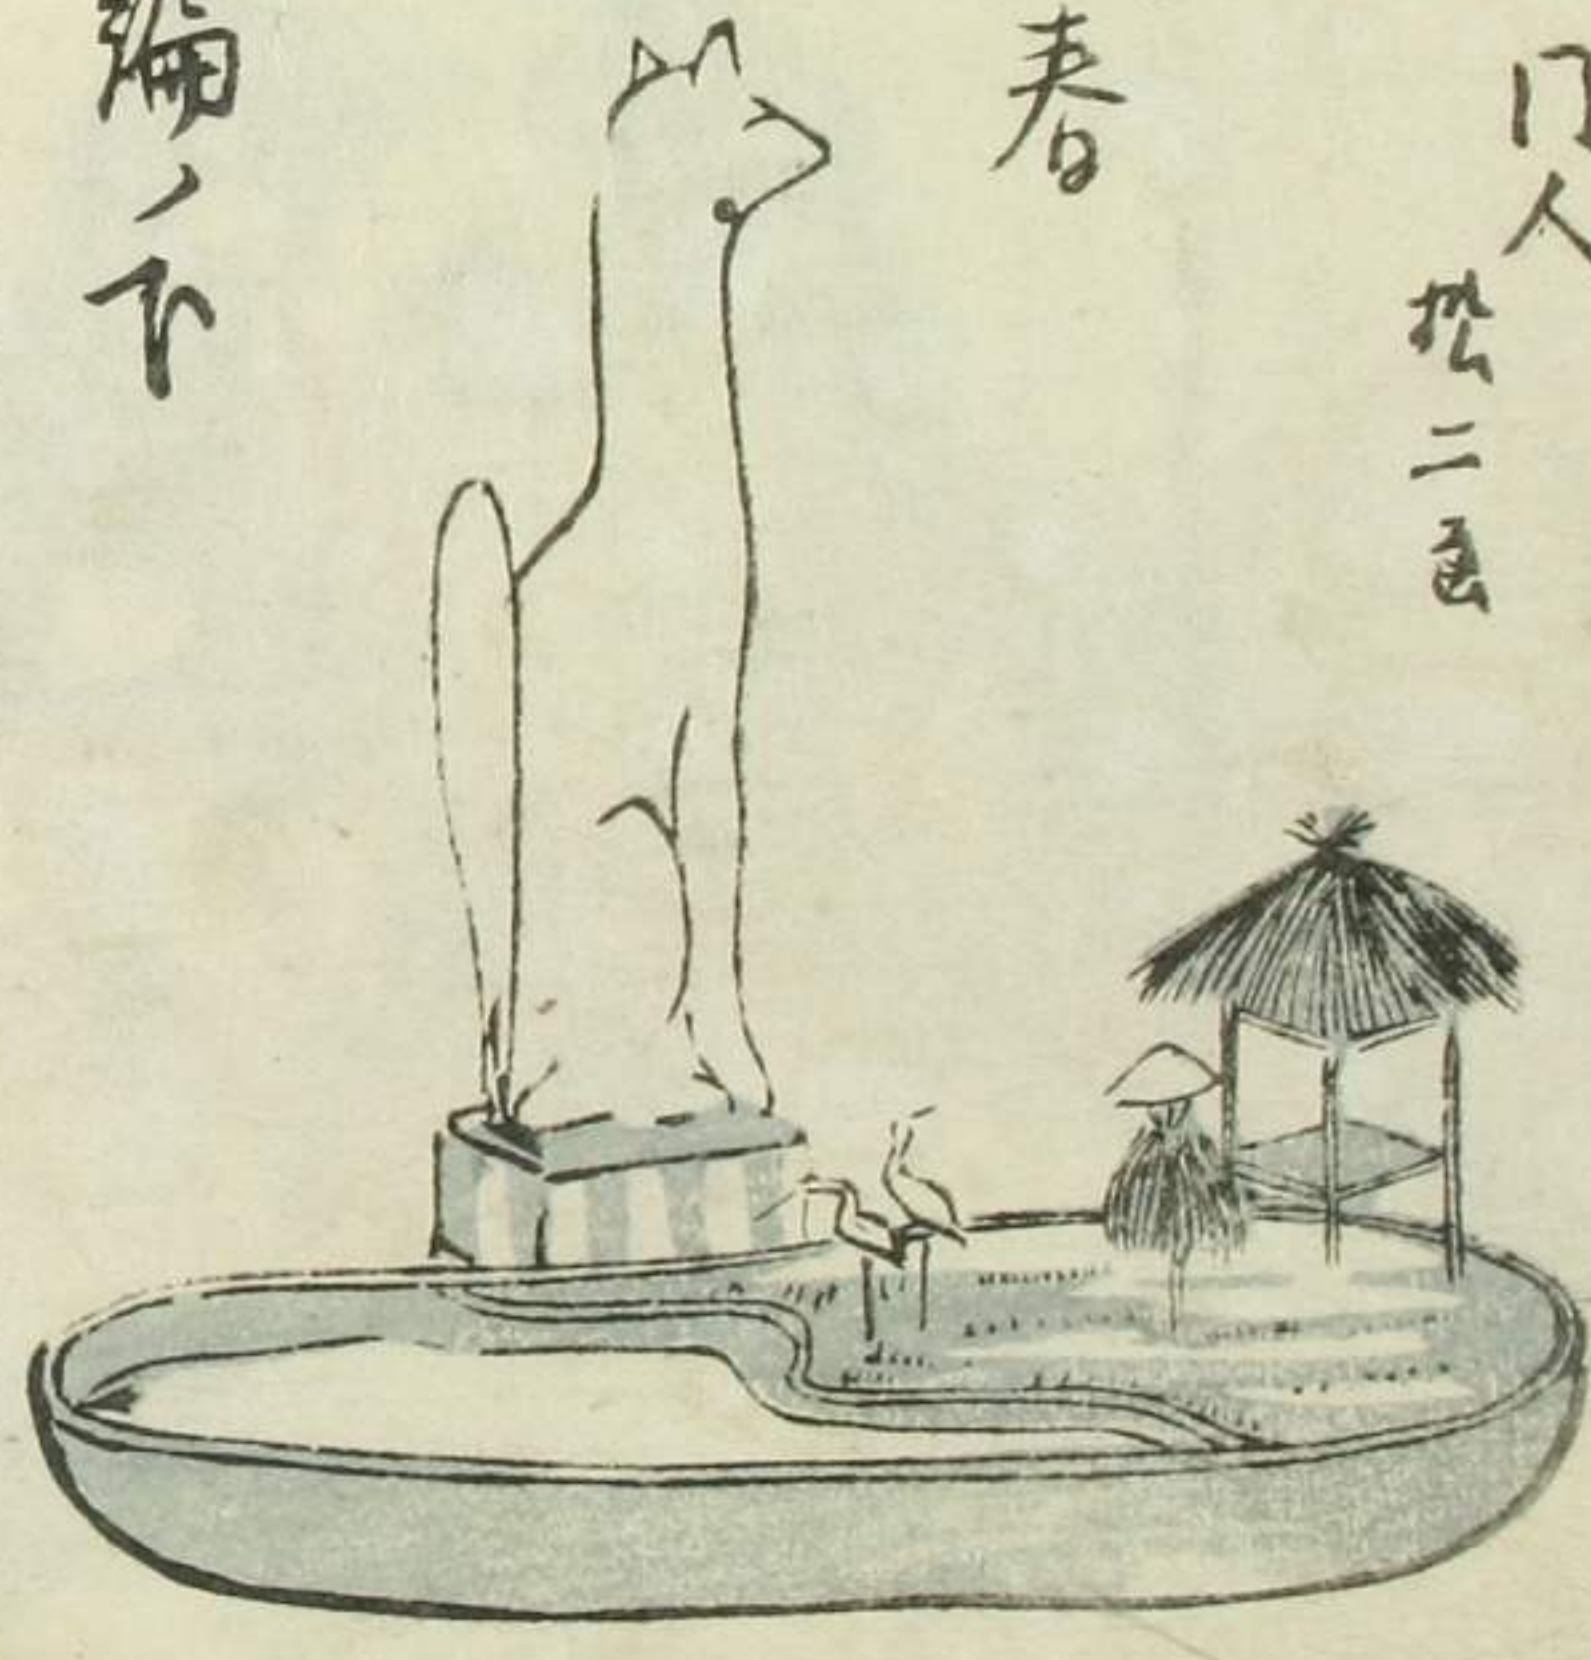 门人
松二画
春
編ノ下